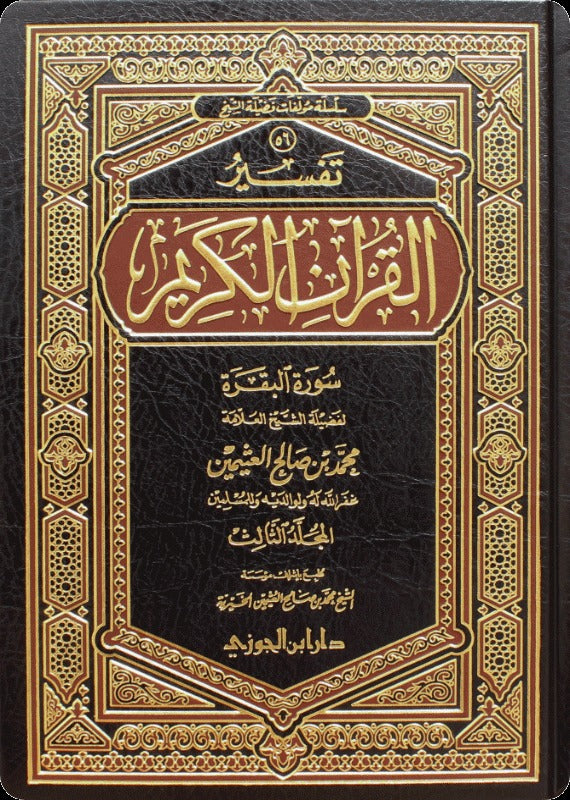 سلسلة مؤلفات فضيلة الشيخ
٥٦
تفسير
القرآن الكريم
سورة البقرة
لفضيلة الشيخ العلامة
محمد بن صالح العثيمين
غفر الله له ولوالديه وللمسلمين
المجلد الثالث
طبع بإشراف مؤسسة
الشيخ محمد بن صالح العثيمين الخيرية
دار ابن الجوزي